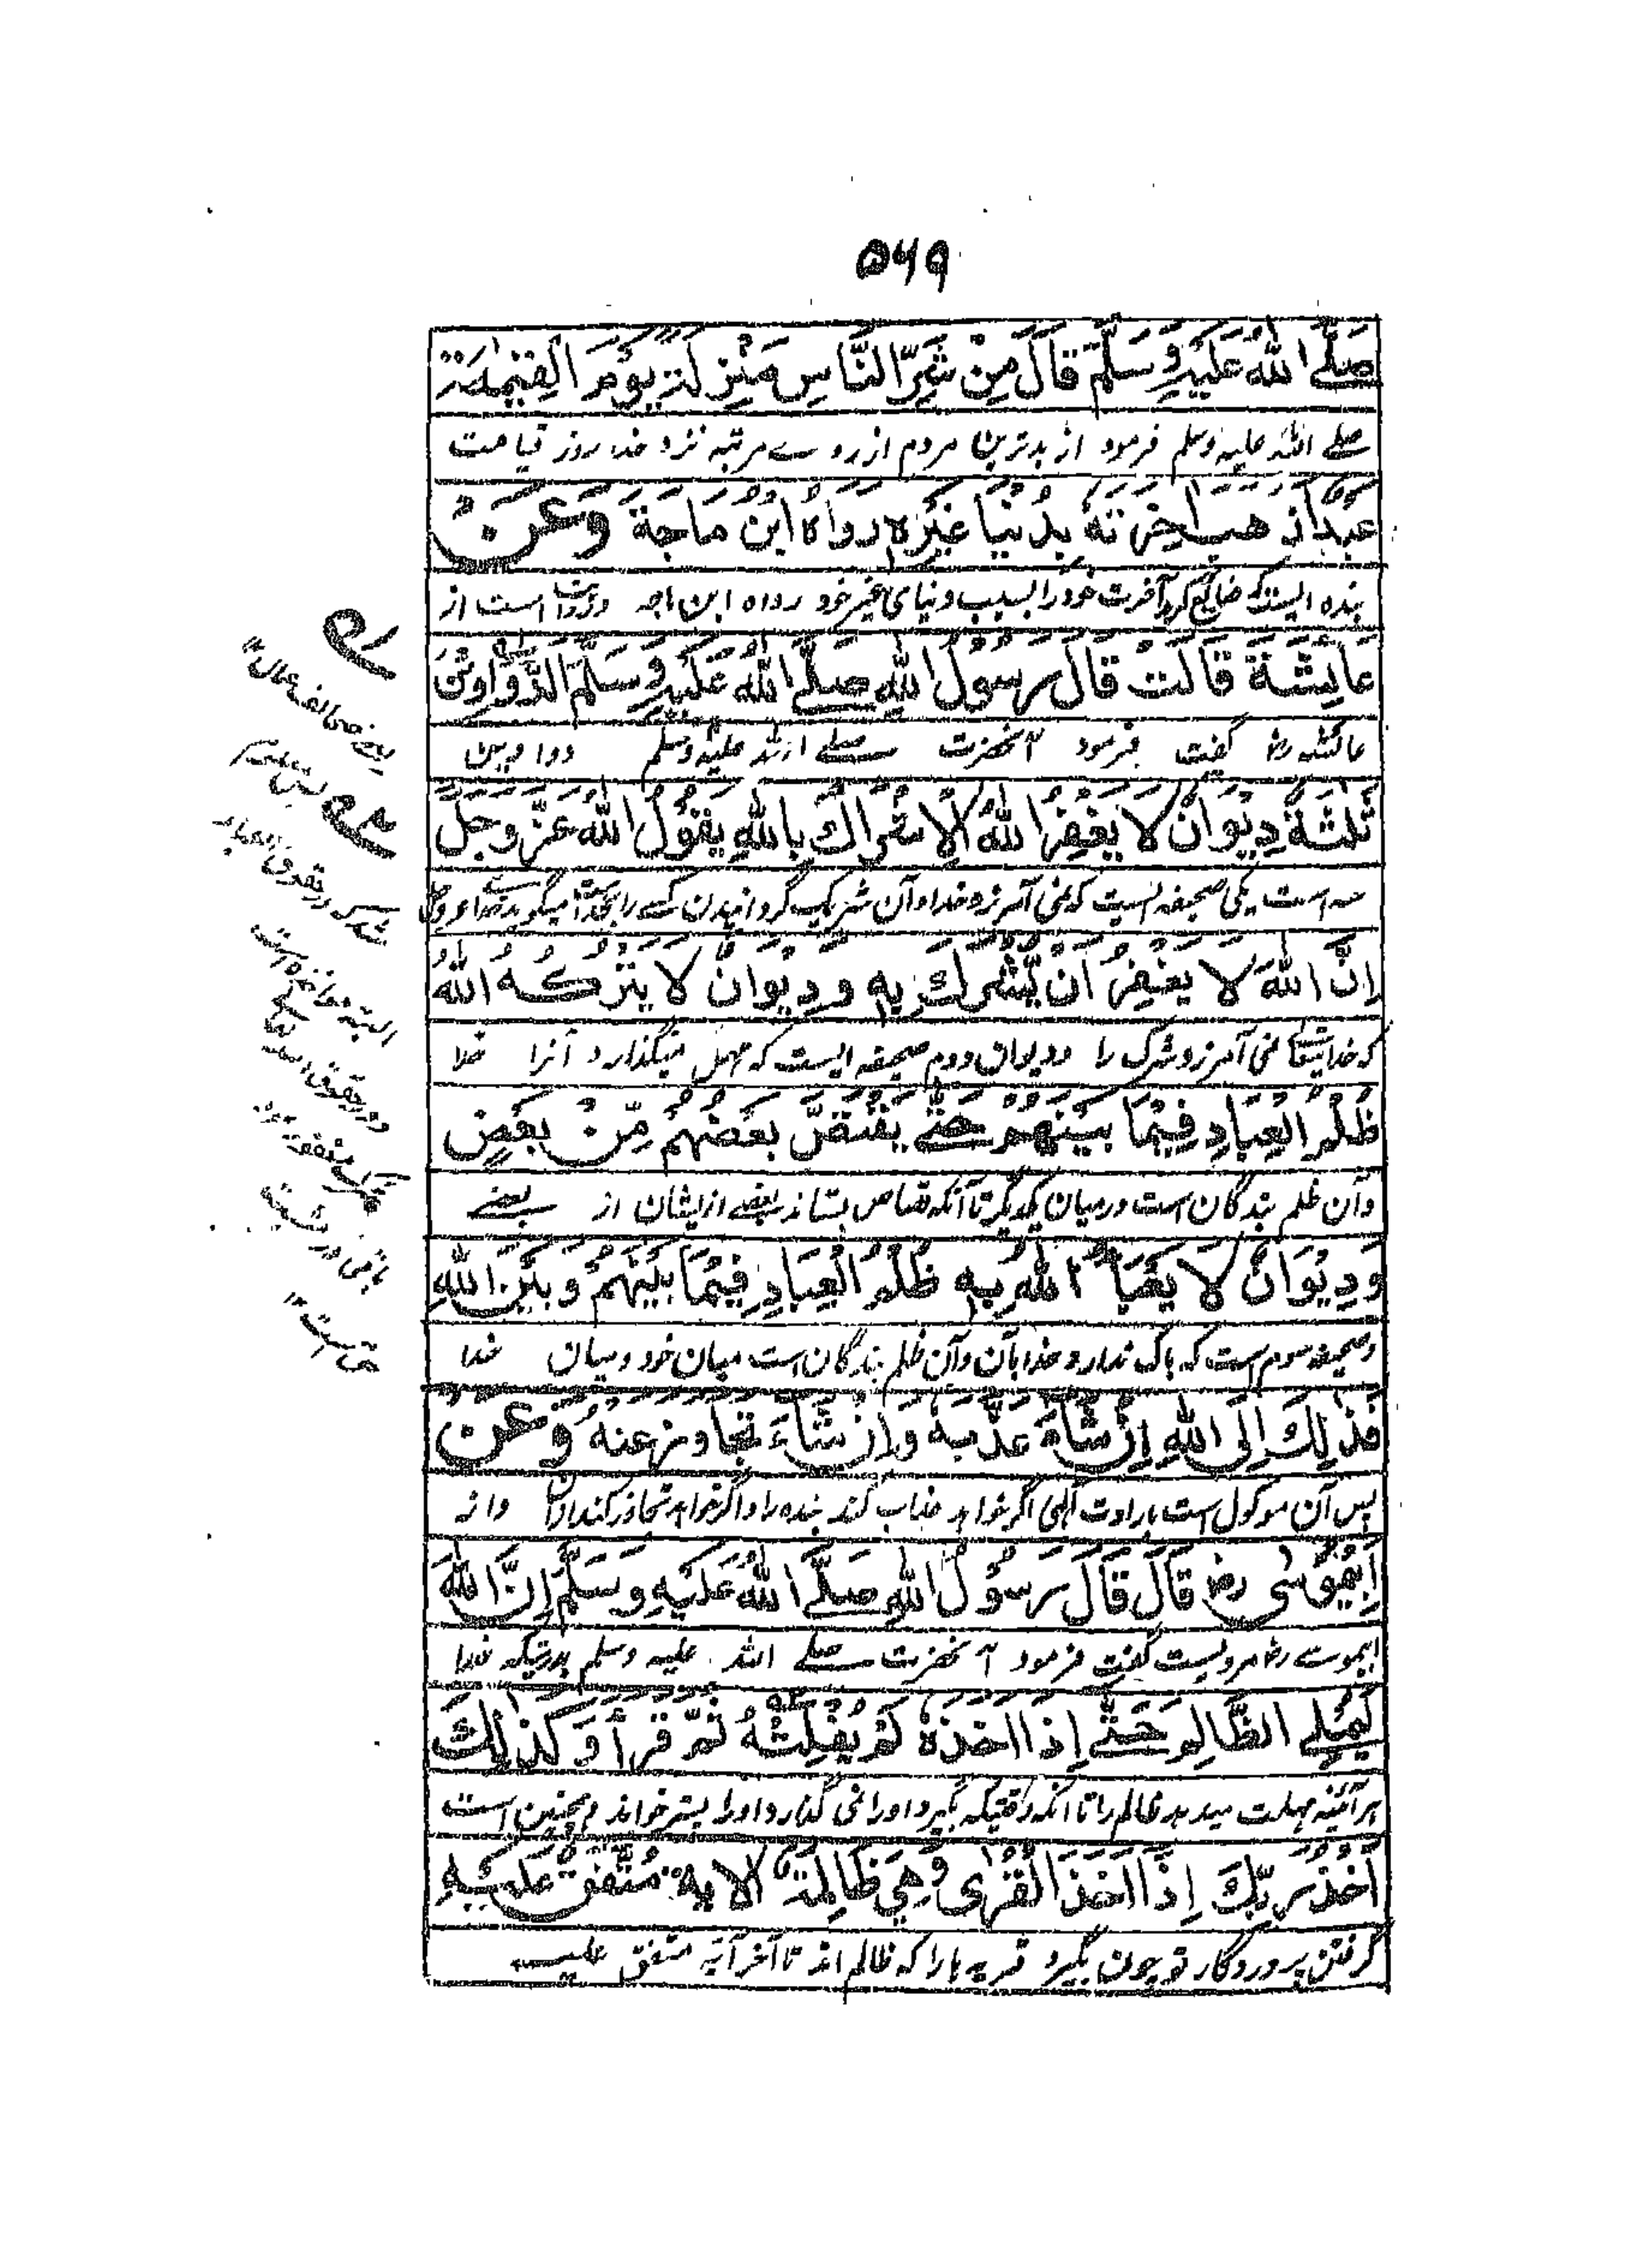 ۵۶۹
صَلَّے اللهُ عَلَیْهِ وَسَلَّمَ قَالَ مِنْ شَرِّ النَّاسِ مَنْزِلَةً یَوْمَ الْقِیٰمَةِ
صلے اللہ علیہ وسلم فرمود از بدترین مردم از روے مرتبہ نزد خدا روز قیامت
عَبْدٌ اَذْهَبَ اٰخِرَتَهٗ بِدُنْیَا غَیْرِهٖ رَوَاهُ ابْنُ مَاجَةَ وَعَنْ
بندہ ایست کہ ضایع کرد آخرت خود را بسبب دنیای غیر خود رواہ ابن ماجہ و روایت است از
عَایِشَةَ قَالَتْ قَالَ رَسُوْلُ اللهِ صَلَّے اللهُ عَلَیْهِ وَسَلَّمَ الدَّوَاوِیْنُ
عائشہ رض گفت فرمود آنحضرت صلے اللہ علیہ وسلم دواوین
ثَلٰثَةٌ دِیْوَانٌ لَا یَغْفِرُ اللهُ الْاِشْرَاكُ بِاللهِ یَقُوْلُ اللهُ عَزَّ وَجَلَّ
سہ است یکی صحیفہ ایست کہ نمی آمرزد خدا و آن شریک گردانیدن کسے را بخدا میگوید خدا عزوجل
اِنَّ اللهَ لَا یَغْفِرُ اَنْ یُّشْرَكَ بِهٖ وَدِیْوَانٌ لَا یَتْرُكُهُ اللهُ
کہ خدایتعالی نمی آمرزد شرک را و دیوان دوم صحیفہ ایست کہ مہمل نمیگذارد آنرا خدا
ظُلْمُ الْعِبَادِ فِیْمَا بَیْنَهُمْ حَتّٰے یَقْتَصَّ بَعْضُهُمْ مِّنْ بَعْضٍ
وآن ظلم بندگان است درمیان یکدیگر تا آنکہ قصاص بستاند بعضے ازیشان از بعضے
وَدِیْوَانٌ لَا یَعْبَأُ اللهُ بِهٖ ظُلْمُ الْعِبَادِ فِیْمَا بَیْنَهُمْ وَبَیْنَ اللهِ
وصحیفہ سوم است کہ باک ندارد خدا بآن وآن ظلم بندگان است میان خود ومیان خدا
فَذٰلِكَ اِلَی اللهِ اِنْ شَاءَ عَذَّبَهٗ وَاِنْ شَاءَ تَجَاوَزَ عَنْهُ وَعَنْ
پس آن موکول است بارادت الٰہی اگر خواہد عذاب کند بندہ را و اگر خواہد تجاوز کند ازو واز
اَبِیْمُوْسٰی رض قَالَ قَالَ رَسُوْلُ اللهِ صَلَّے اللهُ عَلَیْهِ وَسَلَّمَ اِنَّ اللهَ
ابیموسے رض مرویست گفت فرمود آنحضرت صلے اللہ علیہ وسلم بدرستیکہ خدا
لَیُمْلِے الظَّالِمَ حَتّٰے اِذَا اَخَذَهٗ لَمْ یُفْلِتْهُ ثُمَّ قَرَأَ وَكَذٰلِكَ
ہر آئینہ مہلت میدہد ظالم را تا آنکہ وقتیکہ بگیرد او را نمی گذارد او را پستر خواند وہمچنین است
اَخْذُ رَبِّكَ اِذَا اَخَذَ الْقُرٰی وَهِیَ ظَالِمَةٌ الْاٰیَةَ مُتَّفَقٌ عَلَیْهِ
گرفتن پروردگار تو چون بگیرد قریہ ہا را کہ ظالم اند تا آخر آیہ متفق علیہ
یعنے صحائف اعمال ۱۲